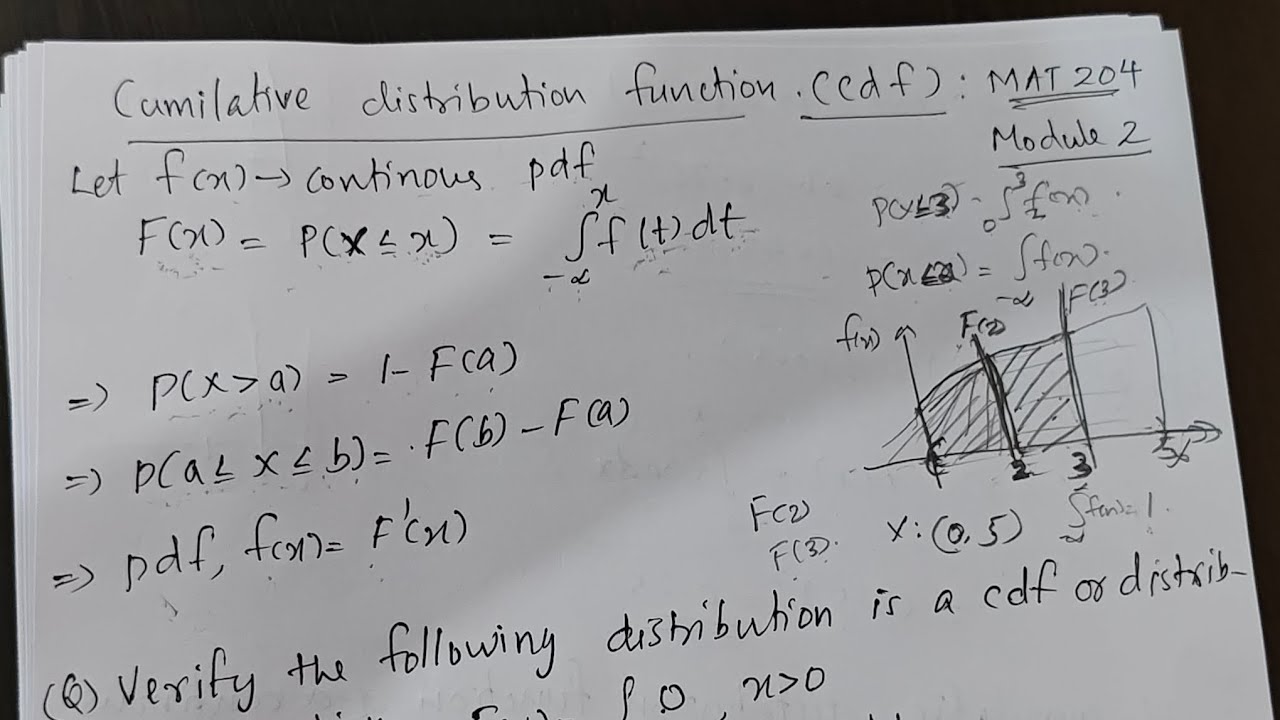 Cumilative distribution function. (cdf) : MAT 204
Module 2
Let f(x) → continous pdf
F(x) = P(X ≤ x) = ∫_{-∞}^{x} f(t) dt
P(x≤3) = ∫_{0}^{3} f(x).
P(x≤2) = ∫_{-∞} f(x).
=> P(X > a) = 1 - F(a)
=> P(a ≤ X ≤ b) = F(b) - F(a)
=> pdf, f(x) = F'(x)
f(x) F(2) F(3)
2 3 5
F(2)
F(3). X : (0, 5) ∫f(x) = 1.
(Q) Verify the following distribution is a cdf or distrib-
{ 0, x>0